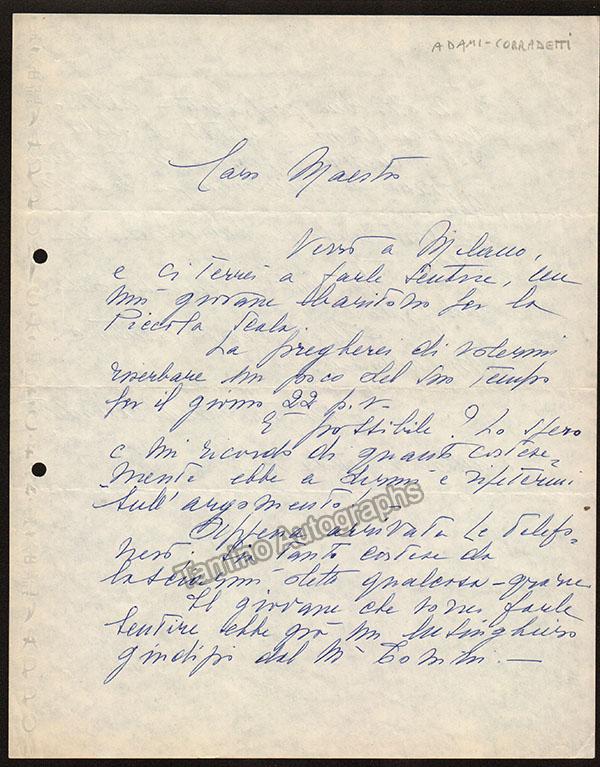 ADAMI-CORRADETTI
Caro Maestro
Verrò a Milano,
e ci terrei a farle sentire, un
mio giovane baritono per la
Piccola Scala.
La pregherei di volermi
riserbare un poco del suo tempo
per il giorno 22 p.v.
È possibile? Lo spero
e mi ricordo di quanto cortese=
mente ebbe a dirmi e ripetermi
sull'argomento.
Appena arrivata Le telefo=
nerò. Sia tanto cortese da
lasciarmi detto qualcosa - grazie
Il giovane che vorrei farle
sentire ebbe già un lusinghiero
giudizio dal M°
Tamino Autographs